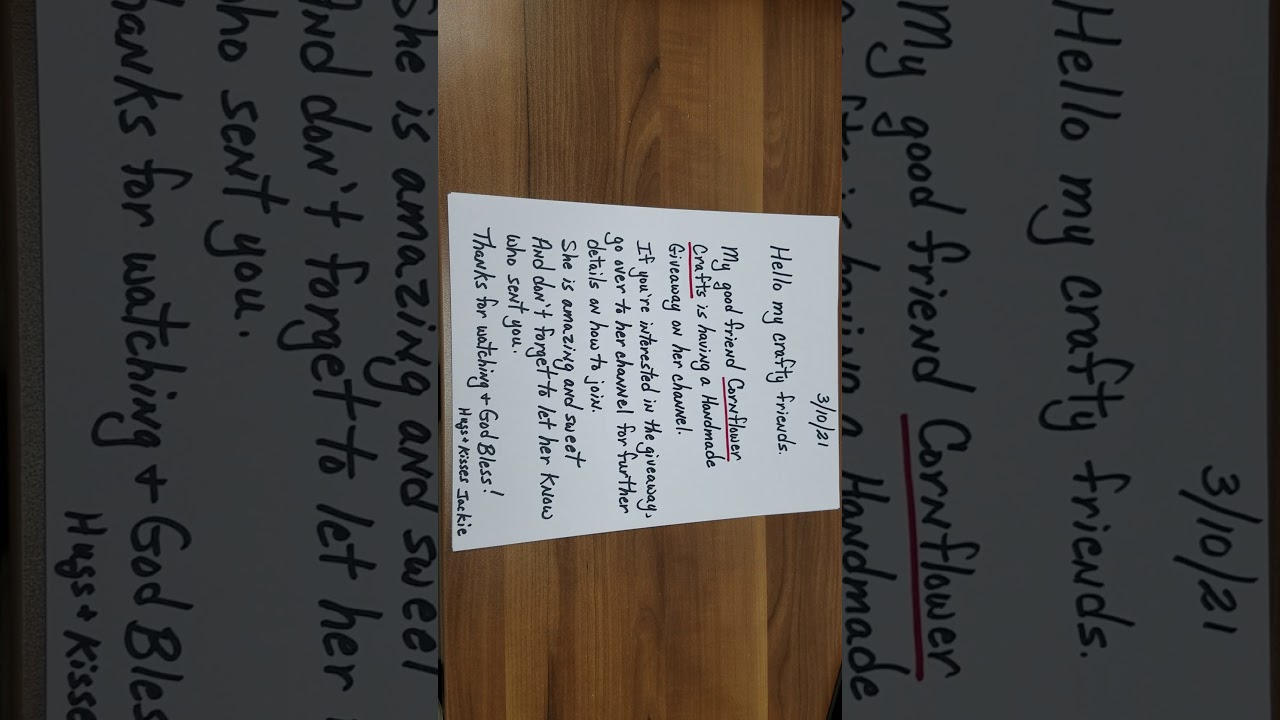 3/10/21
Hello my crafty friends.
My good friend Cornflower
Crafts is having a Handmade
Giveaway on her channel.
If you're interested in the giveaway,
go over to her channel for further
details on how to join.
She is amazing and sweet
And don't forget to let her know
who sent you.
Thanks for watching + God Bless!
Hugs + Kisses Jackie